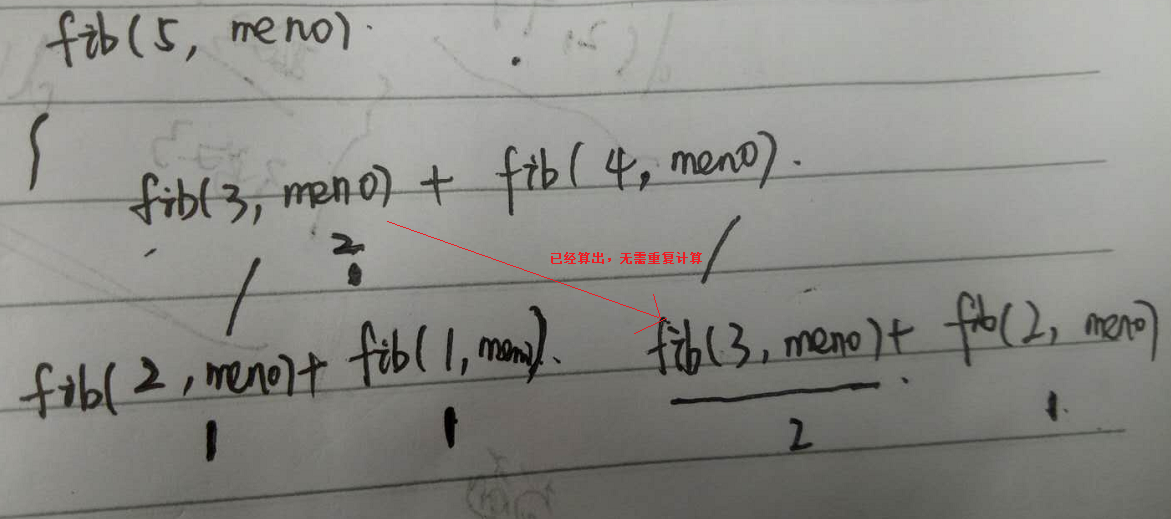 fib(5, meno).
fib(3, meno) + fib(4, meno).
2
已经算出，无需重复计算
fib(2, meno) + fib(1, meno). fib(3, meno) + fib(2, meno)
1 1 2 1.